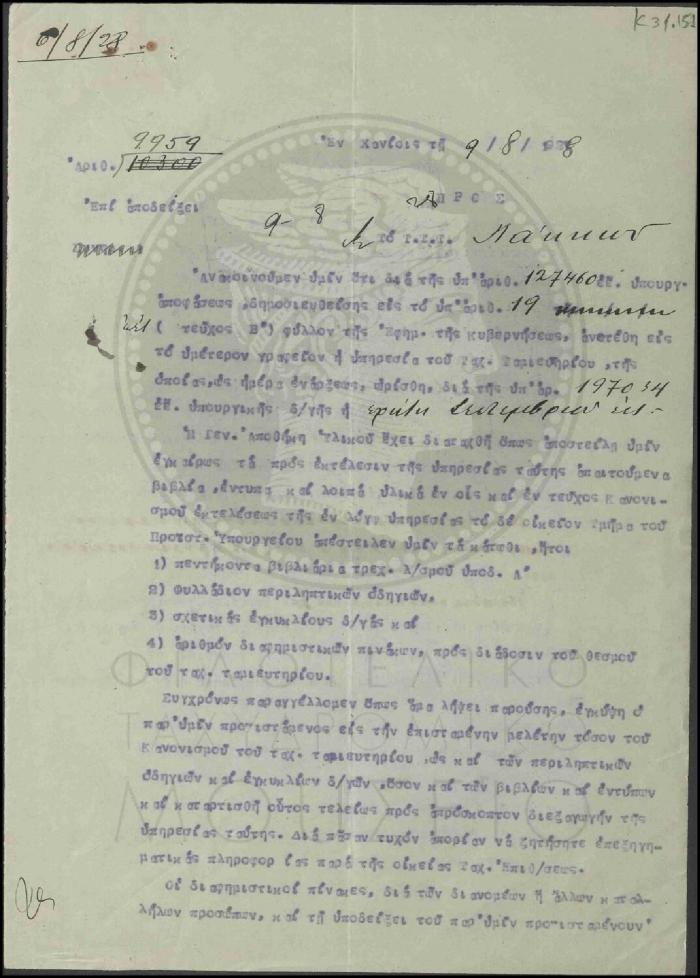 Κ31.152
6/8/28
9959
Ἀριθ. 10300
Ἐν Χανίοις τῇ 9/8/1928
Ἐπί ἀποδείξει
ΠΡΟΣ
9-8
Τό Τ.Τ.Τ. Λάκκων
Ἀνακοινοῦμεν ὑμῖν ὅτι διά τῆς ὑπ' ἀριθ. 127460 ἐ.ἔ. ὑπουργ.
ἀποφάσεως ,δημοσιευθείσης εἰς τό ὑπ' ἀριθ. 19
( τεῦχος Β') φύλλον τῆς Ἐφημ. τῆς κυβερνήσεως, ἀνετέθη εἰς
τό ὑμέτερον γραφεῖον ἡ ὑπηρεσία τοῦ Ταχ. Ταμιευτηρίου ,τῆς
ὁποίας,ὡς ἡμέρα ἐνάρξεως, ὡρίσθη, διά τῆς ὑπ' ἀρ. 197034
ἐ.ἔ. ὑπουργικῆς δ/γῆς ἡ πρώτη Σεπτεμβρίου ἐ.ἔ.-
Ἡ Γεν. Ἀποθήκη Ὑλικοῦ ἔχει διαταχθῆ ὅπως ἀποστείλῃ ὑμῖν
ἐγκαίρως τά πρός ἐκτέλεσιν τῆς ὑπηρεσίας ταύτης ἀπαιτούμενα
βιβλία ,ἔντυπα καί λοιπά ὑλικά ἐν οἷς καί ἕν τεῦχος Κανονι-
σμοῦ ἐκτελέσεως τῆς ἐν λόγῳ ὑπηρεσίας τό δέ οἰκεῖον Τμῆμα τοῦ
Προϊστ. Ὑπουργείου ἀπέστειλεν ὑμῖν τά κάτωθι ,ἤτοι
1) πεντήκοντα βιβλιάρια τρεχ. λ/σμοῦ ὑποδ. Α'
2) Φυλλάδιον περιληπτικῶν ὁδηγιῶν.
3) σχετικάς ἐγκυκλίους δ/γάς καί
4) ἀριθμόν διαφημιστικῶν πινάκων, πρός διάδοσιν τοῦ θεσμοῦ
τοῦ ταχ. ταμιευτηρίου.
Συγχρόνως παραγγέλλομεν ὅπως ἅμα λήψει παρούσης, ἐγκύψῃ ὁ
παρ' ὑμῖν προϊστάμενος εἰς τήν ἐπισταμένην μελέτην τόσον τοῦ
Κανονισμοῦ τοῦ ταχ. ταμιευτηρίου ,ὡς καί τῶν περιληπτικῶν
ὁδηγιῶν καί ἐγκυκλίων δ/γῶν ,ὅσον καί τῶν βιβλίων καί ἐντύπων
καί καταρτισθῆ οὗτος τελείως πρός ἀπρόσκοπτον διεξαγωγήν τῆς
ὑπηρεσίας ταύτης. Διά πᾶσαν τυχόν ἀπορίαν νά ζητήσητε ἐπεξηγη-
ματικάς πληροφορίας παρά τῆς οἰκείας Ταχ. Ἐπιθ/σεως.
Οἱ διαφημιστικοί πίνακες, διά τῶν διανομέων ἤ ἄλλων καταλ-
λήλων προσώπων, καί τῇ ὑποδείξει τοῦ παρ' ὑμῖν προϊσταμένουν'
ΦΙΛΟΤΕΛΙΚΟ
ΤΑΧΥΔΡΟΜΙΚΟ
ΜΟΥΣΕΙΟ